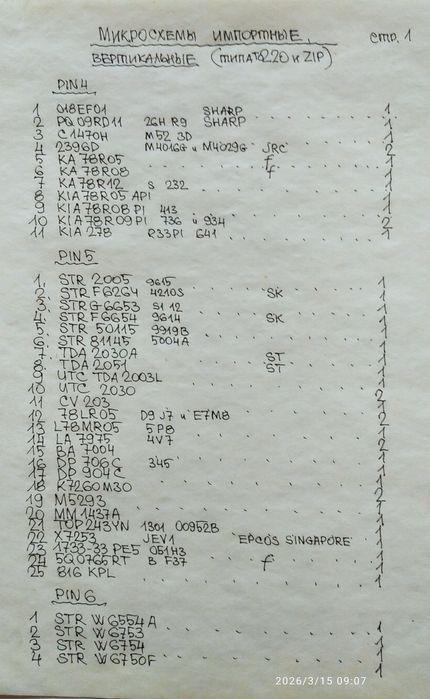 МИКРОСХЕМЫ ИМПОРТНЫЕ, стр. 1
ВЕРТИКАЛЬНЫЕ (ТИПА ТО220 и ZIP)
PIN4
1 018EF01 SHARP 1
2 PQ09RD11 2GH R9 SHARP 1
3 C1470H M52 3D 1
4 2396D M4016G и M4029G JRC 2
5 KA78R05 f 1
6 KA78R08 f 1
7 KA78R12 S 232 1
8 KIA78R05API 1
9 KIA78R08PI 413 1
10 KIA78R09PI 736 и 934 2
11 KIA278 R33PI G41 1
PIN5
1. STR 2005 9615 1
2. STR F6264 4210S SK 1
3. STR G6653 S1 12 1
4. STR F6654 9614 SK 1
5. STR 50115 9919B 1
6. STR 81145 5004A 1
7. TDA 2030A ST 1
8. TDA 2051 ST 1
9 UTC TDA 2003L 1
10 UTC 2030
11 CV 203 2
12 78LR05 D9 J7 и E7M8 2
13 L78MR05 5P8
14 LA 7975 4V7
15 BA 7004
16 DP 706C 345
17 DP 904C
18 K7260M30
19 M5293 2
20 MM 1437A
21 TOP243YN 1301 00952B 1
22 X7253 JEV1 "EPCOS SINGAPORE" 1
23 1733-33 PE5 051H3 1
24 5Q0765RT B F37 f 1
25 816 KPL 1
PIN6
1 STR W6554A 1
2 STR W6753 1
3 STR W6754 1
4 STR W6750F 1
2026/3/15 09:07